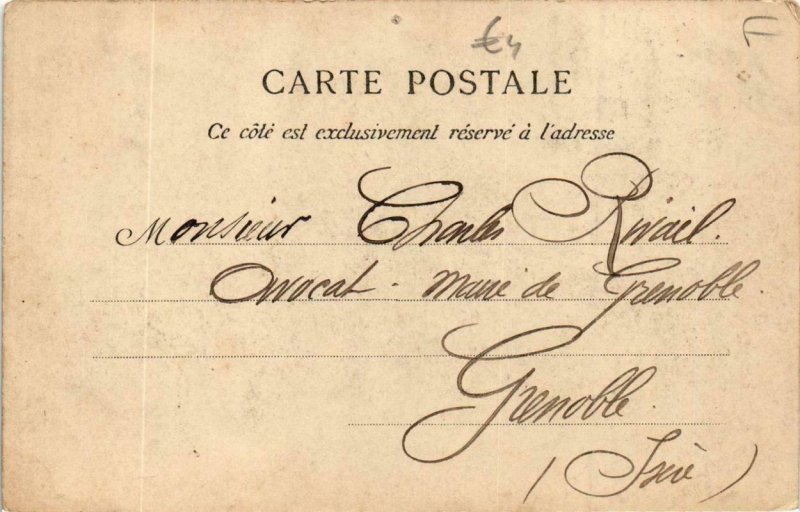 €4
F
CARTE POSTALE
Ce côté est exclusivement réservé à l'adresse
Monsieur Charles Rivail.
Avocat - Maire de Grenoble.
Grenoble.
(Isère)